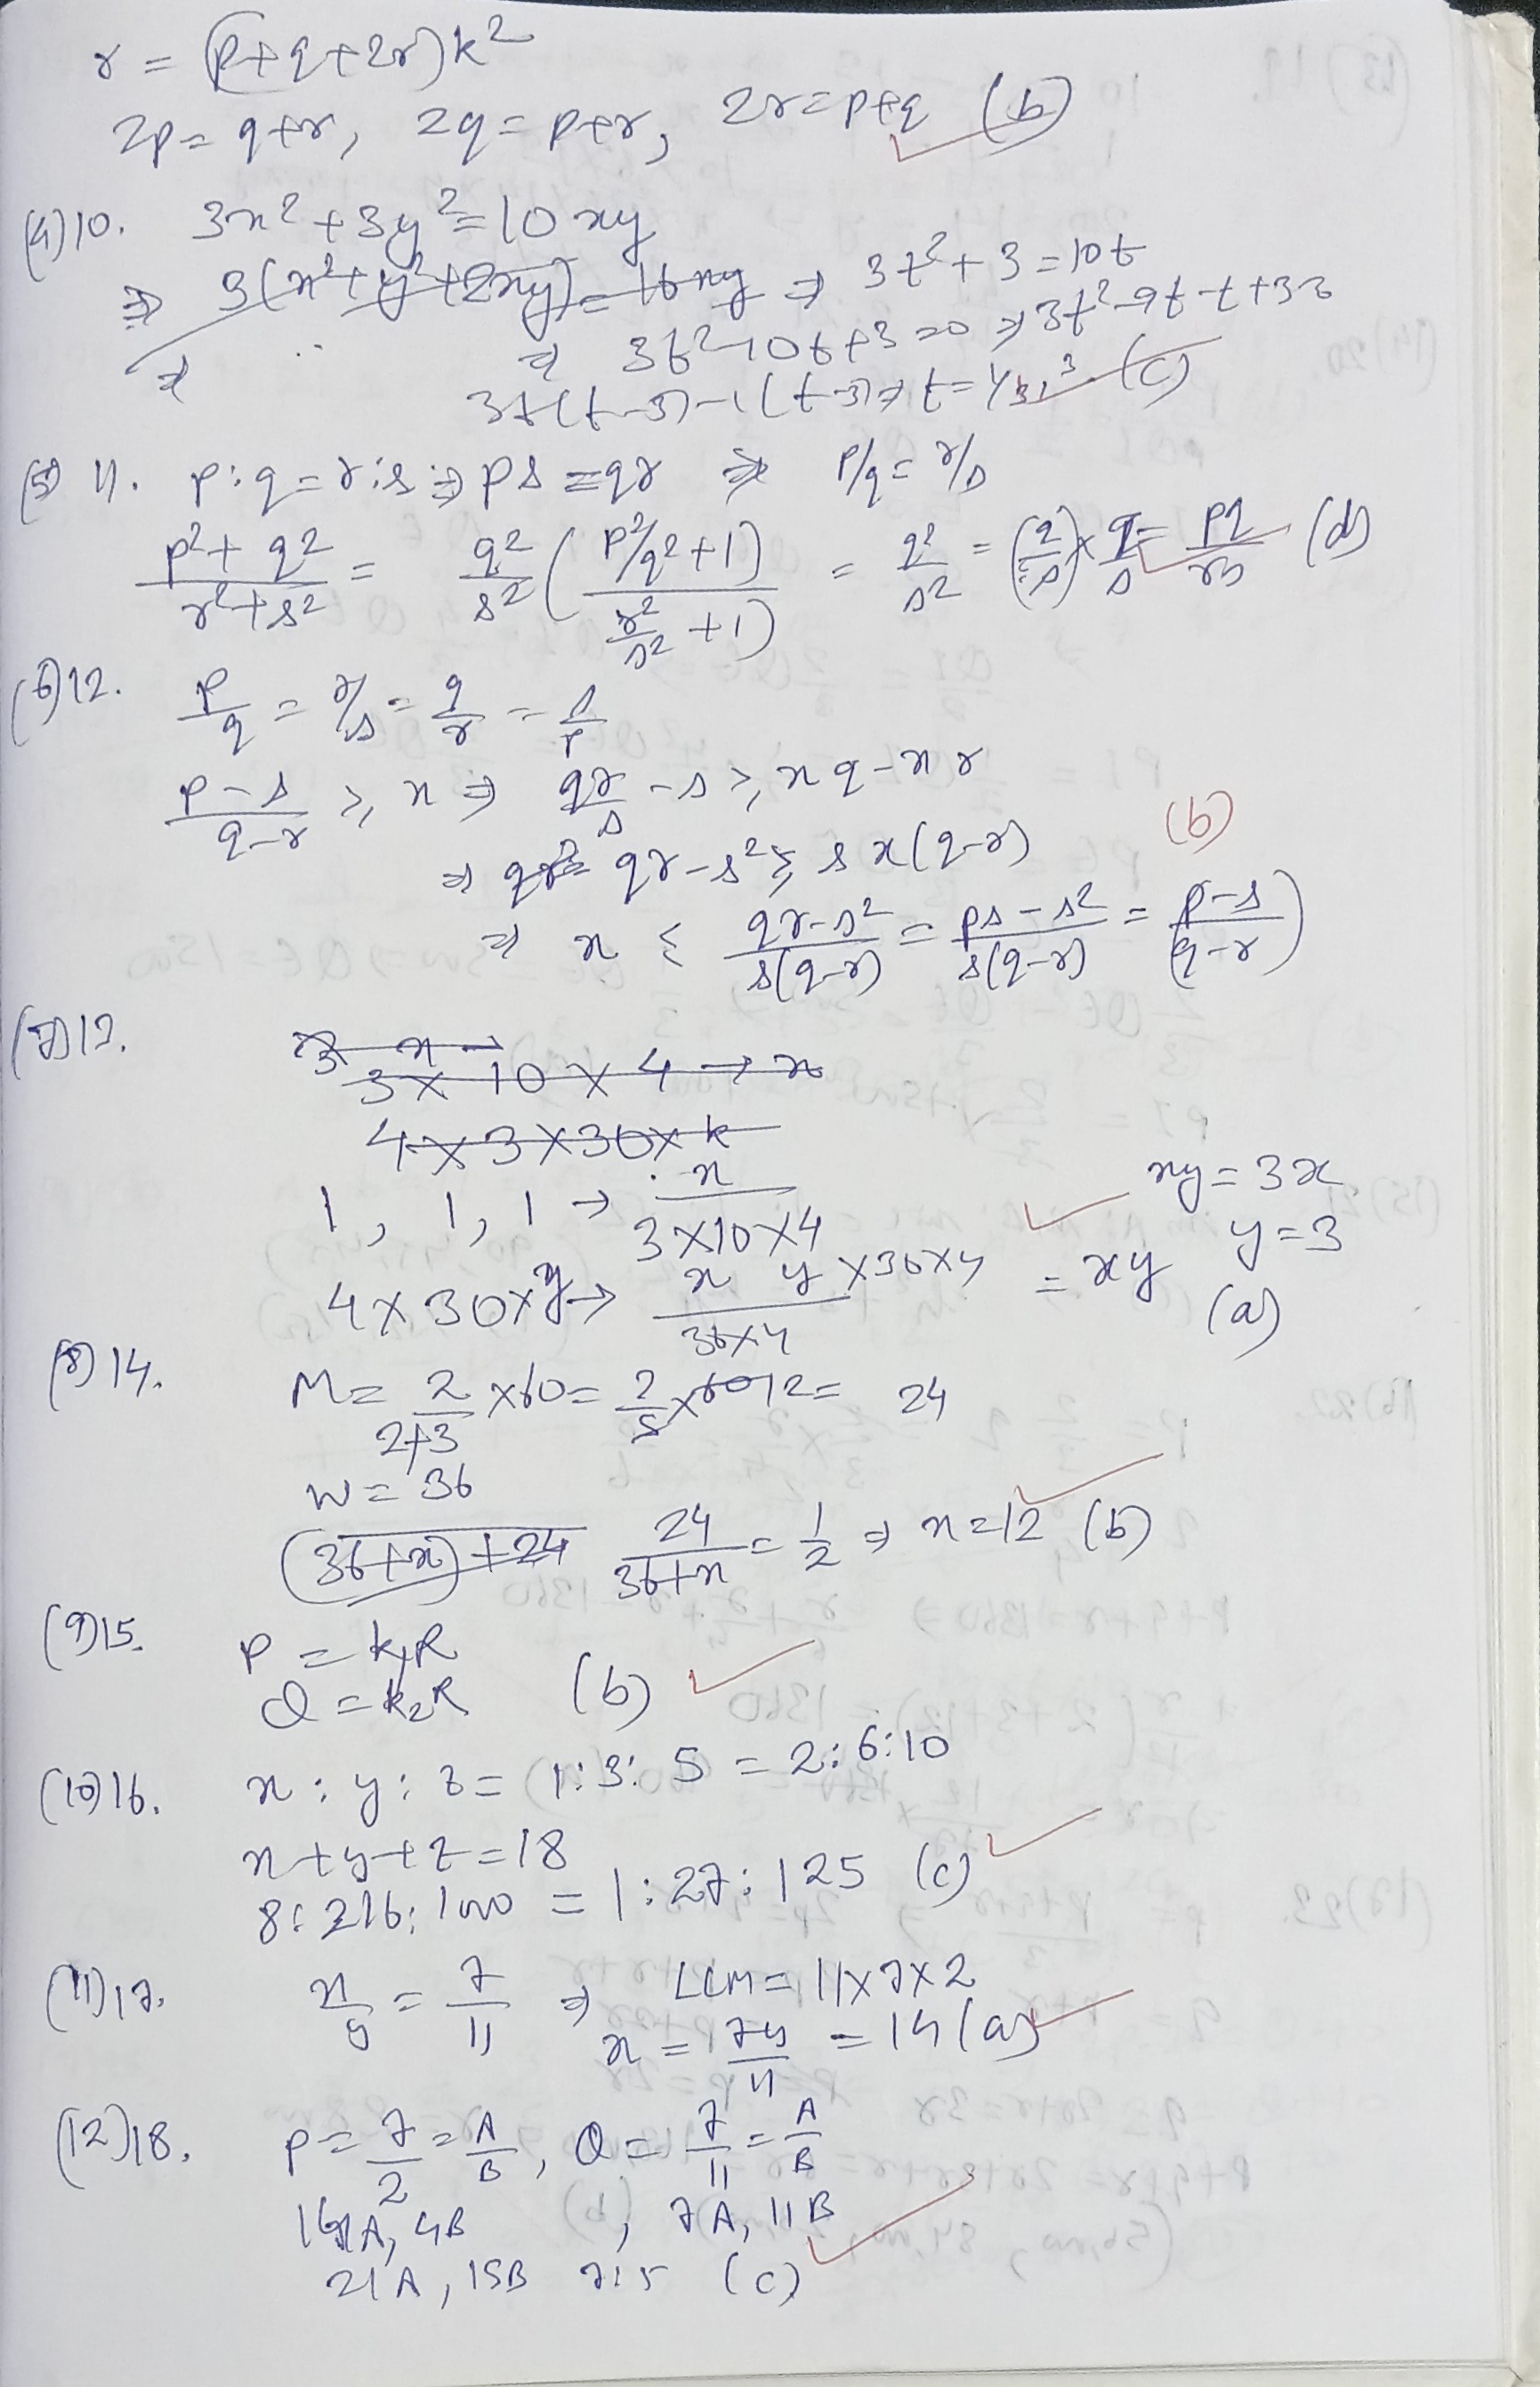 r = (p+q+2r)k²
2p = q+r, 2q = p+r, 2r = p+q (b)
(4) 10. 3x² + 3y² = 10xy
⇒ 3(x²+y²+2xy) = 16xy ⇒ 3t² + 3 = 10t
⇒ ⇒ 3t²-10t+3=0 ⇒ 3t²-9t-t+33
3t(t-3)-1(t-3) ⇒ t = 1/3, 3 (c)
(5) 11. p:q = r:s ⇒ ps = qr ⇒ p/q = r/s
(p²+q²)/(r²+s²) = q²/s² ((p²/q²+1)/(r²/s²+1)) = q²/s² = (q/s) × q/s = pq/rs (d)
(6) 12. p/q = r/s = q/r = s/p
(p-s)/(q-r) ≥ x ⇒ qr/s - s ≥ xq - xr
⇒ qr - s² ≥ s x(q-r) (b)
⇒ x ≤ (qr-s²)/(s(q-r)) = (ps-s²)/(s(q-r)) = (p-s)/(q-r)
(7) 13. 3 x →
3 × 10 × 4 → x
4 × 3 × 30 × k
1, 1, 1 → x/(3×10×4) xy = 3x
4 × 30 × y → (x y × 30×4)/(30×4) = xy y = 3
(a)
(8) 14. M = 2/(2+3) × 60 = 2/5 × 60 12 = 24
W = 36
(36+x)+24 24/(36+x) = 1/2 ⇒ x = 12 (b)
(9) 15. P = k₁R
Q = k₂R (b)
(10) 16. x : y : z = 1:3:5 = 2:6:10
x+y+z = 18
8:216:1000 = 1:27:125 (c)
(11) 17. x/y = 7/11 ⇒ LCM = 11×7×2
x = 7y/11 = 14 (a)
(12) 18. P = 7/2 = A/B, Q = 7/11 = A/B
14A, 4B, 7A, 11B
21A, 15B 7:5 (c)